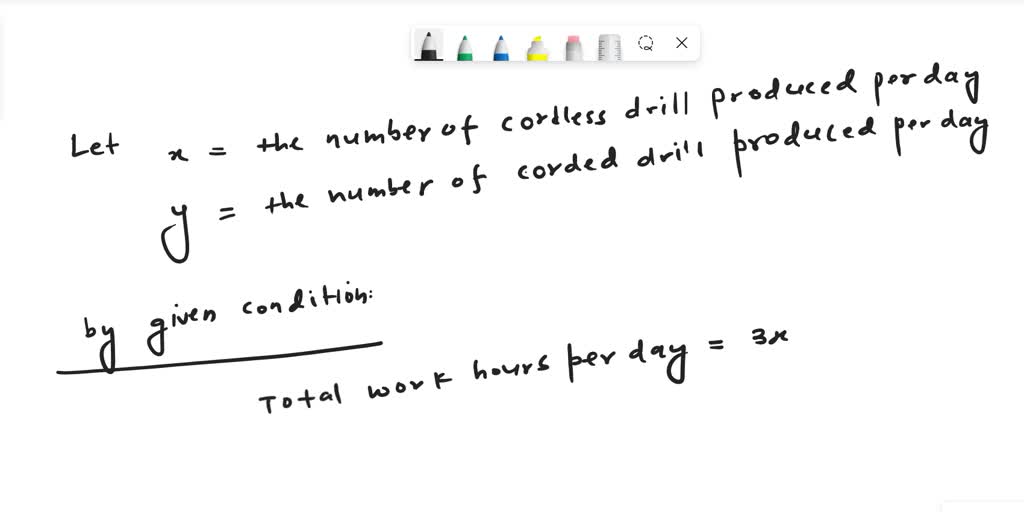 Let x = the number of cordless drill produced per day
y = the number of corded drill produced per day
by given condition:
Total work hours per day = 3x